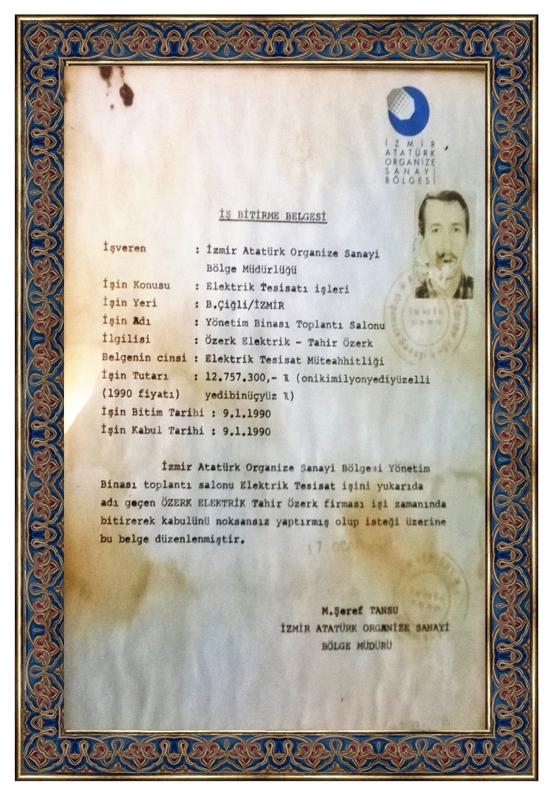 İZMİR
ATATÜRK
ORGANİZE
SANAYİ
BÖLGESİ
İŞ BİTİRME BELGESİ
İşveren : İzmir Atatürk Organize Sanayi
Bölge Müdürlüğü
İşin Konusu : Elektrik Tesisatı işleri
İşin Yeri : B.Çiğli/İZMİR
İşin Adı : Yönetim Binası Toplantı Salonu
İlgilisi : Özerk Elektrik - Tahir Özerk
Belgenin cinsi : Elektrik Tesisat Müteahhitliği
İşin Tutarı : 12.757.300,- TL (onikimilyonyediyüzelli
(1990 fiyatı) yedibinüçyüz TL)
İşin Bitim Tarihi : 9.1.1990
İşin Kabul Tarihi : 9.1.1990
İzmir Atatürk Organize Sanayi Bölgesi Yönetim
Binası toplantı salonu Elektrik Tesisat işini yukarıda
adı geçen ÖZERK ELEKTRİK Tahir Özerk firması işi zamanında
bitirerek kabulünü noksansız yaptırmış olup isteği üzerine
bu belge düzenlenmiştir.
17
M.Şeref TANSU
İZMİR ATATÜRK ORGANİZE SANAYİ
BÖLGE MÜDÜRÜ